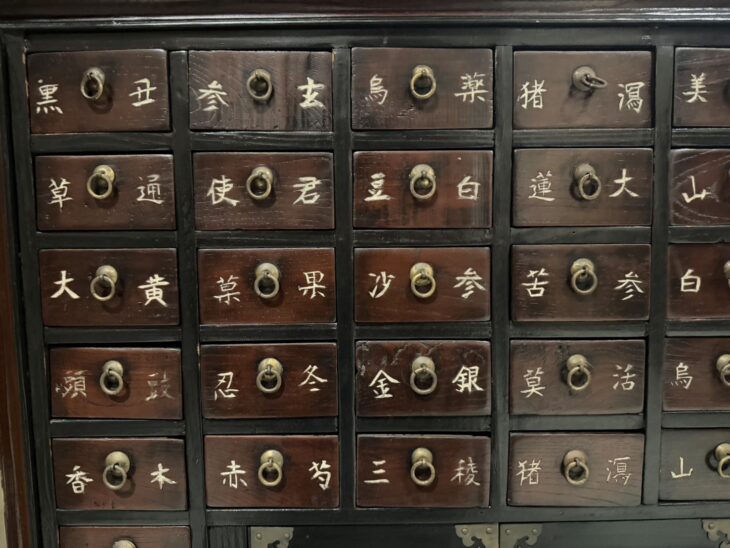 黑 丑 参 玄 烏 薬 猪 瀉 美
草 通 使 君 豆 白 蓮 大 山
大 黄 菓 果 沙 参 苦 参 白
頭 忍 冬 金 銀 莫 活 烏
香 木 赤 芍 三 稜 猪 瀉 山